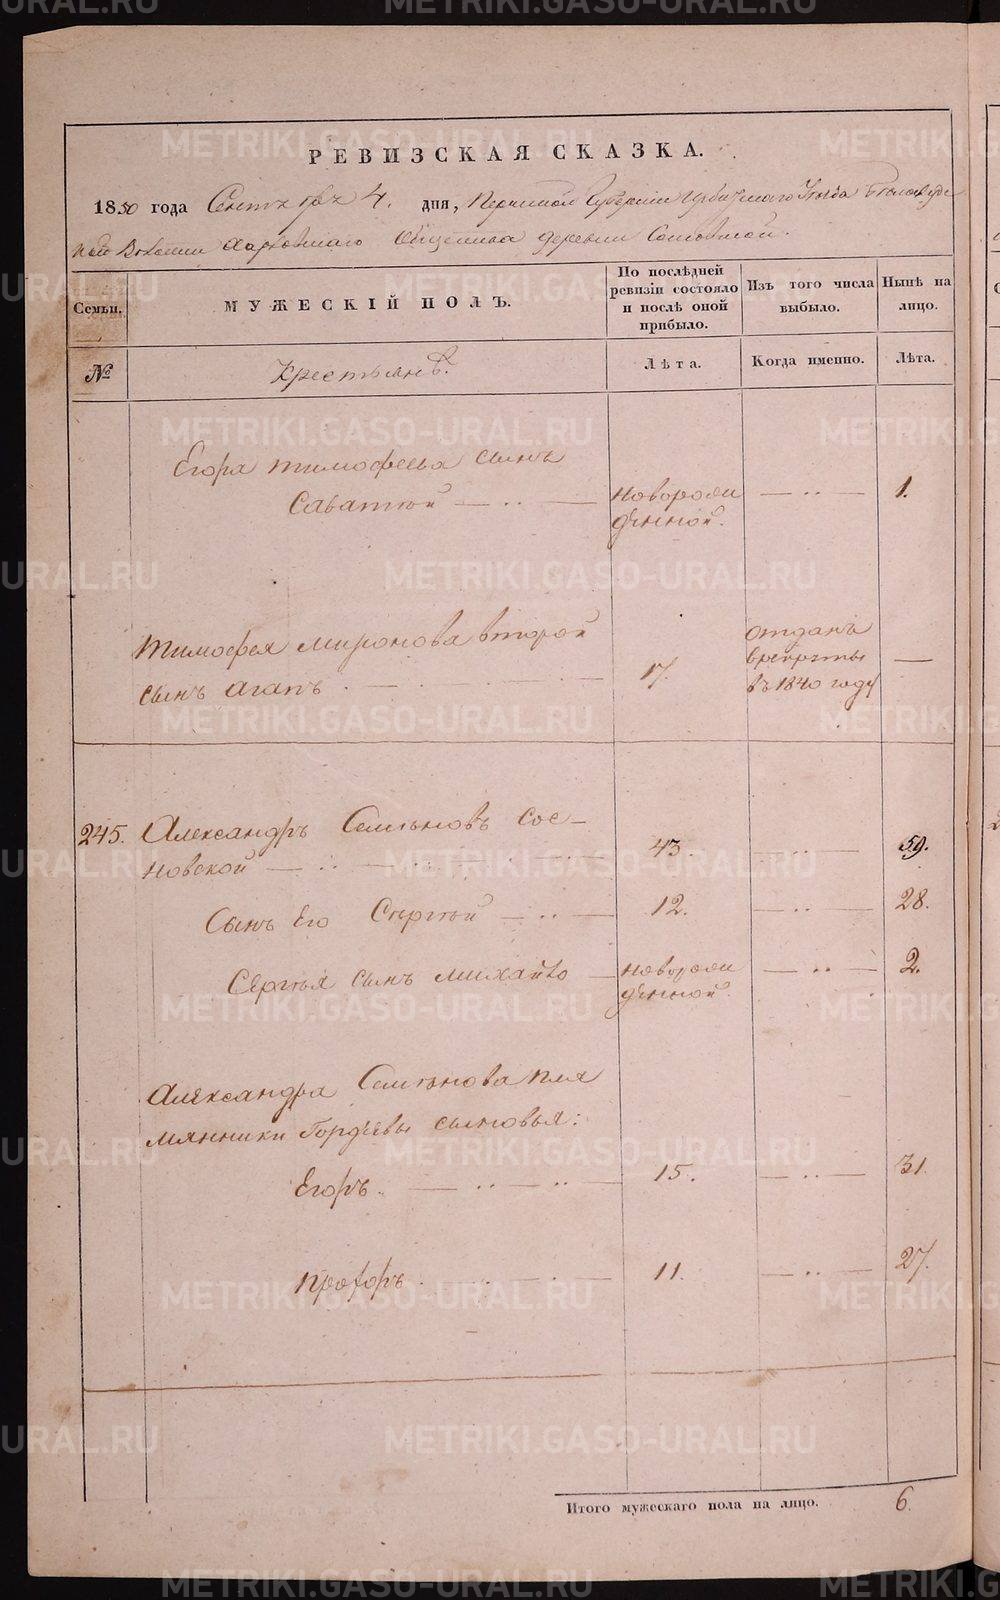 РЕВИЗСКАЯ СКАЗКА.
1850 года Сентября 4. дня, Пермской Губернии Ирбитскаго Уезда
Волости Харловскаго Общества деревни Сосновской.
Семьи.
МУЖЕСКІЙ ПОЛЪ.
По послѣдней ревизіи состояло и послѣ оной прибыло.
Изъ того числа выбыло.
Нынѣ на лицо.
№
Крестьянъ.
Лѣта.
Когда именно.
Лѣта.
Егора Тимофеева сынъ
Саватей — новорож 1.
денной.
Тимофея Миронова второй
сынъ Агапъ. 17. отданъ в рекруты въ 1840 году —
245. Александръ Семёновъ Сос-
новской 43. 59.
Сынъ Его Сергей 12. 28.
Сергея сынъ Михайло новорож 2.
денной.
Александра Семёнова пле
мянники Гордеевы сыновья:
Егоръ. 15. 31.
Прохоръ. 11. 27.
Итого мужескаго пола на лицо. 6.
METRIKI.GASO-URAL.RU